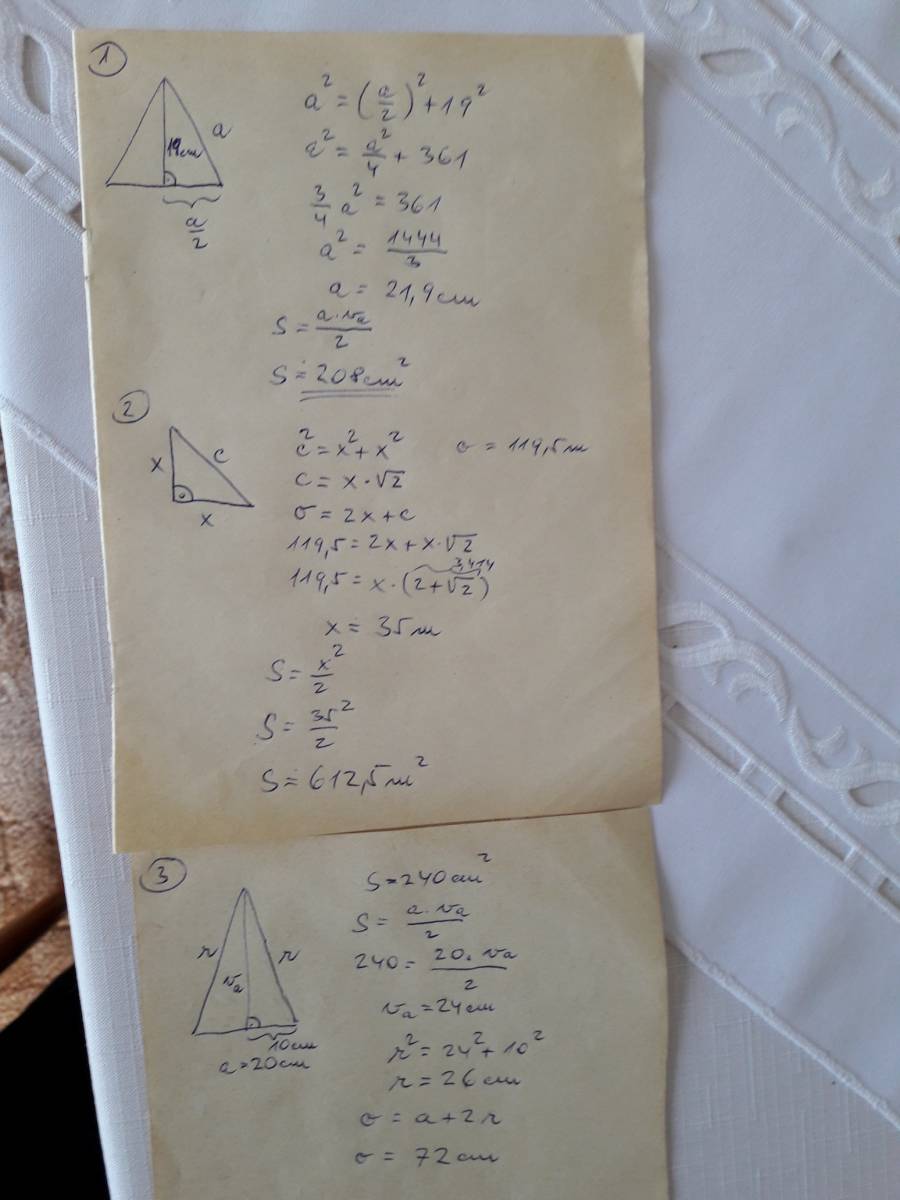 1
a
19cm
a/2
a² = (a/2)² + 19²
a² = a²/4 + 361
3/4 a² = 361
a² = 1444/3
a = 21,9cm
S = a·vₐ/2
S ≐ 208cm²
2
x
c
x
c² = x² + x²
o = 119,5m
c = x·√2
o = 2x + c
119,5 = 2x + x·√2
3,414
119,5 = x·(2+√2)
x ≐ 35m
S = x²/2
S = 35²/2
S ≐ 612,5m²
3
r
r
vₐ
10cm
a=20cm
S=240cm²
S = a·vₐ/2
240 = 20·vₐ/2
vₐ = 24cm
r² = 24² + 10²
r = 26cm
o = a + 2r
o = 72cm